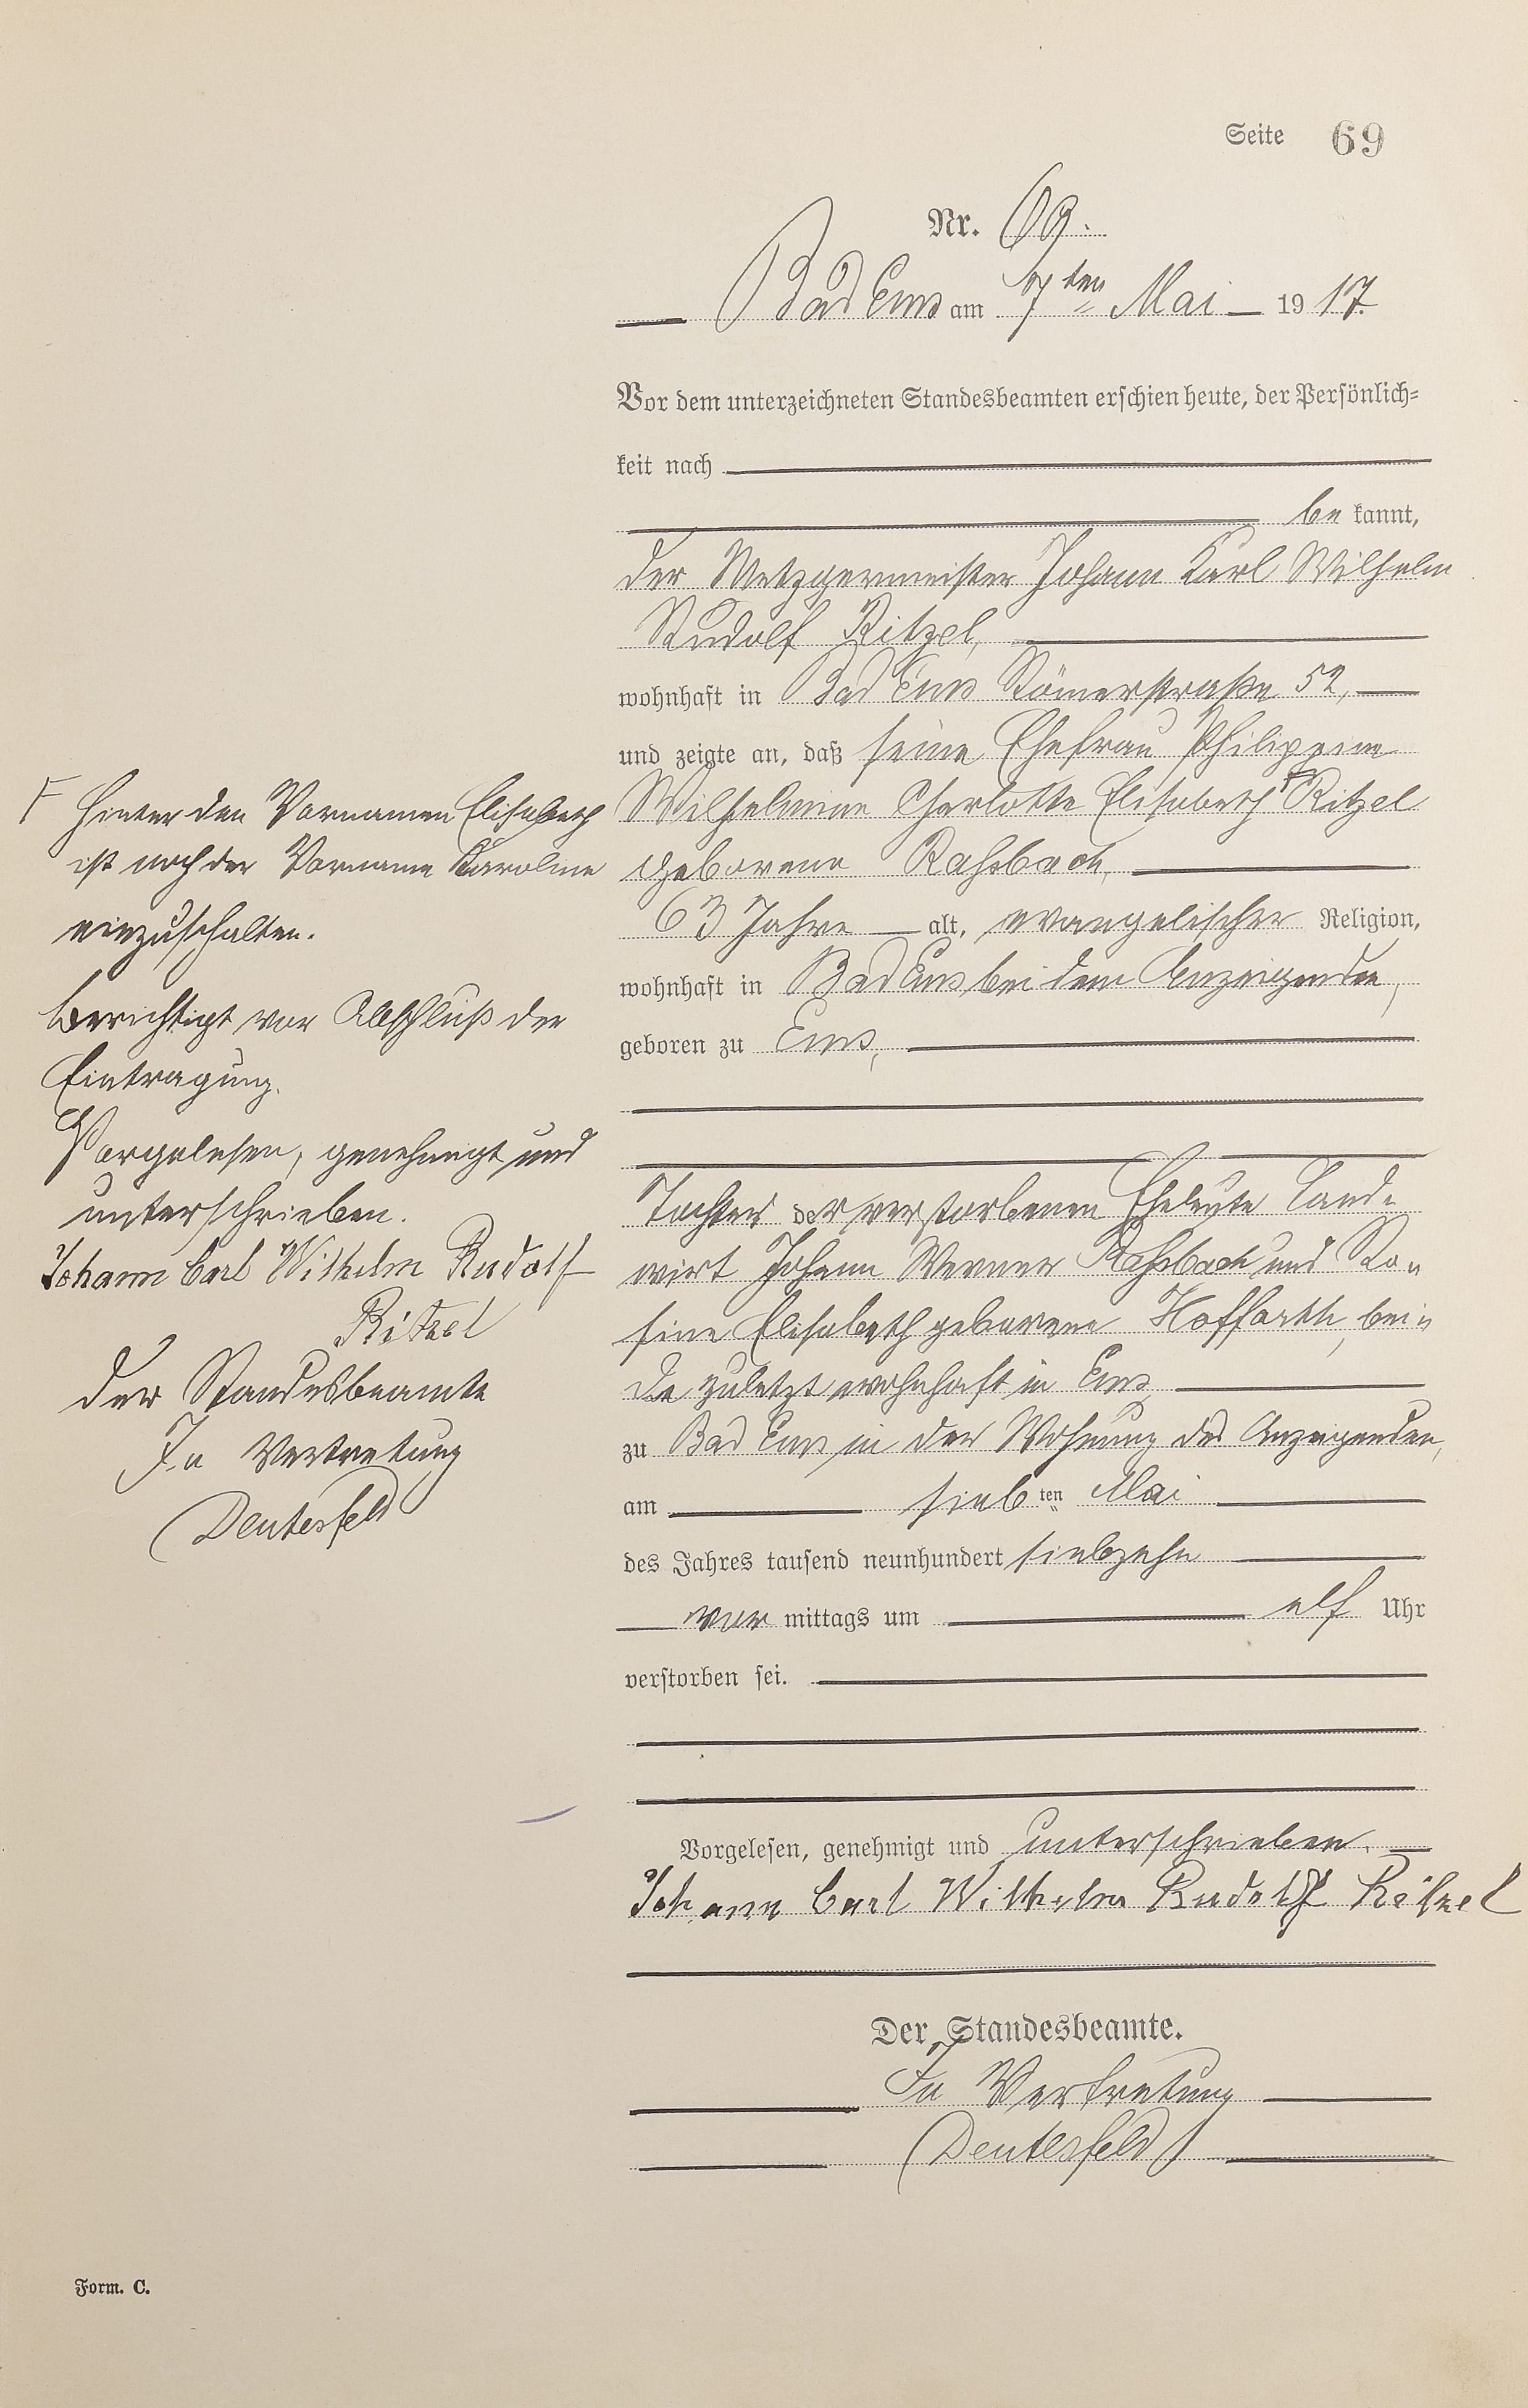 Seite 69
Nr. 69.
Bad Ems am 7ten Mai 1917.
Vor dem unterzeichneten Standesbeamten erschien heute, der Persönlich-
keit nach
be kannt,
der Metzgermeister Johann Karl Wilhelm
Rudolf Ritzel,
wohnhaft in Bad Ems Römerstraße 52,
und zeigte an, daß seine Ehefrau Philippine
Wilhelmine Charlotte Elisabeth F Ritzel
geborene Rahsbach,
63 Jahre alt, evangelischer Religion,
wohnhaft in Bad Ems bei dem Anzeigenden,
geboren zu Ems,
Tochter der verstorbenen Eheleute Land-
wirt Johann Werner Rahsbach und Ro-
sine Elisabeth geborene Hoffarth, bei-
de zuletzt wohnhaft in Ems,
zu Bad Ems in der Wohnung des Anzeigenden,
am siebten Mai
des Jahres tausend neunhundert siebzehn
vor mittags um elf Uhr
verstorben sei.
Vorgelesen, genehmigt und unterschrieben.
Johann Carl Wilhelm Rudolf Ritzel
Der Standesbeamte.
In Vertretung
Deutesfeld
F Hinter den Vornamen Elisabeth
ist noch der Vorname Karoline
einzuschalten.
Berichtigt vor Abschluß der
Eintragung.
Vorgelesen, genehmigt und
unterschrieben.
Johann Carl Wilhelm Rudolf
Ritzel
der Standesbeamte
In Vertretung
Deutesfeld
Form. C.